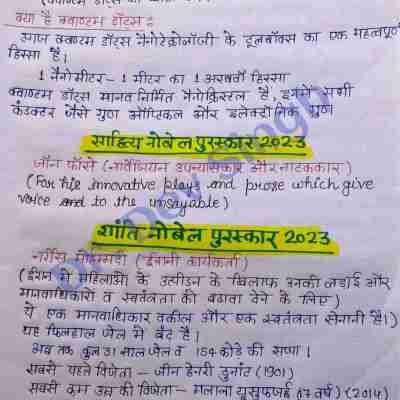 क्या है क्वाण्टम डॉट्स :
आज क्वाण्टम डॉट्स नैनोटेक्नोलॉजी के टूलबॉक्स का एक महत्वपूर्ण
हिस्सा है।
1 नैनोमीटर - 1 मीटर का 1 अरबवाँ हिस्सा
क्वाण्टम डॉट्स मानव निर्मित नैनोक्रिस्टल है, इनमें सभी
कंडक्टर जैसे गुण ऑप्टिकल और इलेक्ट्रोनिक गुण
साहित्य नोबेल पुरस्कार 2023
जॉन फॉसे (नॉर्वेजियन उपन्यासकार और नाटककार)
(For his innovative plays and prose which give
voice and to the unsayable)
शांति नोबेल पुरस्कार 2023
नर्गिस मोहम्मदी (ईरानी कार्यकर्ता)
(ईरान में महिलाओं के उत्पीडन के खिलाफ उनकी लडाई और
मानवाधिकारों व स्वतंत्रता की बढावा देने के लिए)
ये एक मानवाधिकार वकील और एक स्वतंत्रता सेनानी है।
यह फिलहाल जेल में बंद है।
अब तक कुल 31 साल जेल व 154 कोडे की सजा।
सबसे पहले विजेता - जीन हेनरी दुनांट (1901)
सबसे कम उम्र की विजेता - मलाला युसूफजई (17 वर्ष) (2014)
Dev Singh